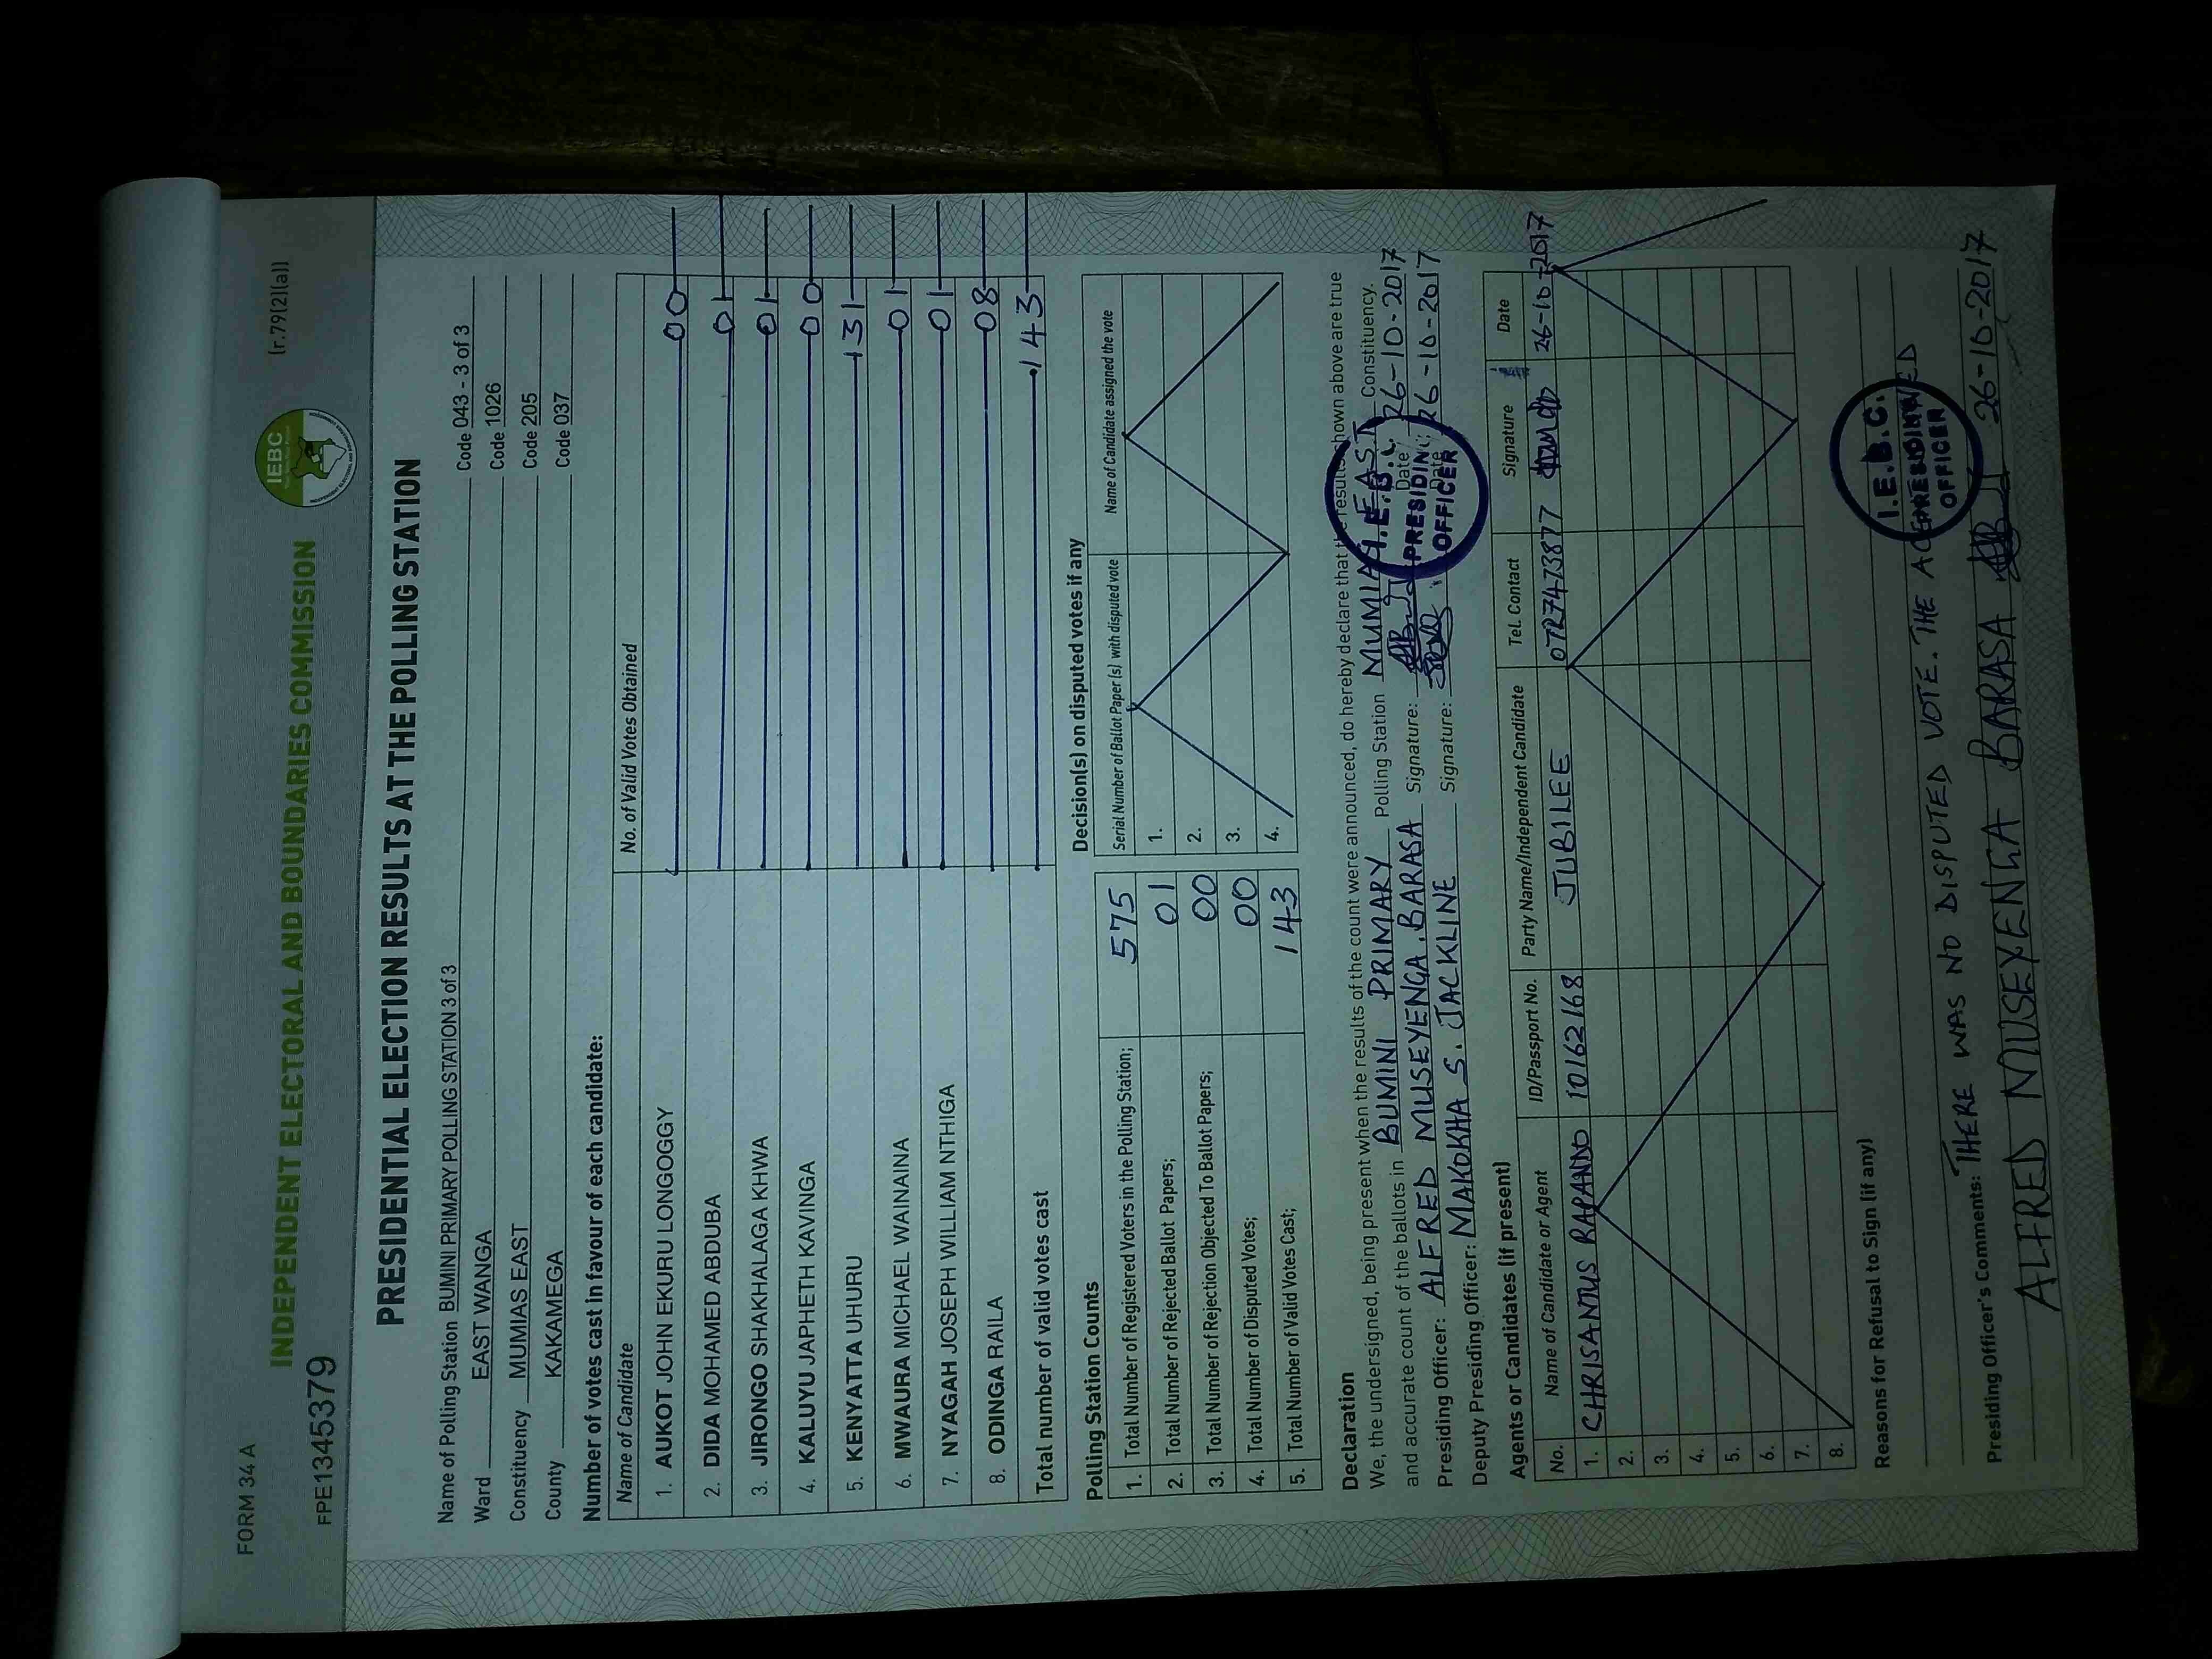 FORM 34 A
INDEPENDENT ELECTORAL AND BOUNDARIES COMMISSION
IEBC
(r.79(2)(a))
FPE1345379
PRESIDENTIAL ELECTION RESULTS AT THE POLLING STATION
Name of Polling Station BUMINI PRIMARY POLLING STATION 3 of 3 Code 043 - 3 of 3
Ward EAST WANGA Code 1026
Constituency MUMIAS EAST Code 205
County KAKAMEGA Code 037
Number of votes cast in favour of each candidate:
Name of Candidate No. of Valid Votes Obtained
1. AUKOT JOHN EKURU LONGOGGY 00
2. DIDA MOHAMED ABDUBA 01
3. JIRONGO SHAKHALAGA KHWA 01
4. KALUYU JAPHETH KAVINGA 00
5. KENYATTA UHURU 131
6. MWAURA MICHAEL WAINAINA 01
7. NYAGAH JOSEPH WILLIAM NTHIGA 01
8. ODINGA RAILA 08
Total number of valid votes cast 143
Polling Station Counts
1. Total Number of Registered Voters in the Polling Station; 575
2. Total Number of Rejected Ballot Papers; 01
3. Total Number of Rejection Objected To Ballot Papers; 00
4. Total Number of Disputed Votes; 00
5. Total Number of Valid Votes Cast; 143
Decision(s) on disputed votes if any
Serial Number of Ballot Paper (s) with disputed vote Name of Candidate assigned the vote
1.
2.
3.
4.
Declaration
We, the undersigned, being present when the results of the count were announced, do hereby declare that the results shown above are true
and accurate count of the ballots in BUMINI PRIMARY Polling Station MUMIAS EAST Constituency.
Presiding Officer: ALFRED MUSEYENGA BARASA Signature: Date 26-10-2017
Deputy Presiding Officer: MAKOKHA S. JACKLINE Signature: Date 26-10-2017
I.E.B.C.
PRESIDING
OFFICER
Agents or Candidates (if present)
No. Name of Candidate or Agent ID/Passport No. Party Name/Independent Candidate Tel. Contact Signature Date
1. CHRISANTUS RAPANDO 10162168 JUBILEE 0727473877 26-10-2017
2.
3.
4.
5.
6.
7.
8.
Reasons for Refusal to Sign (if any)
I.E.B.C.
PRESIDING
OFFICER
Presiding Officer's Comments: THERE WAS NO DISPUTED VOTE. THE
ALFRED MUSEYENGA BARASA 26-10-2017